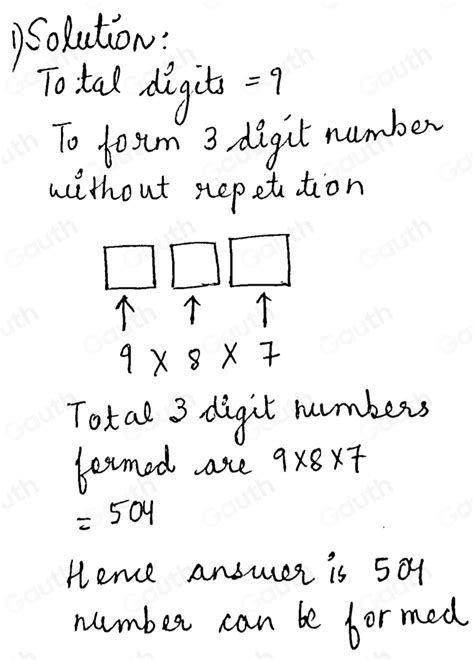 1) Solution:
Total digits = 9
To form 3 digit number
without repetition
9 X 8 X 7
Total 3 digit numbers
formed are 9X8X7
= 504
Hence answer is 504
number can be formed